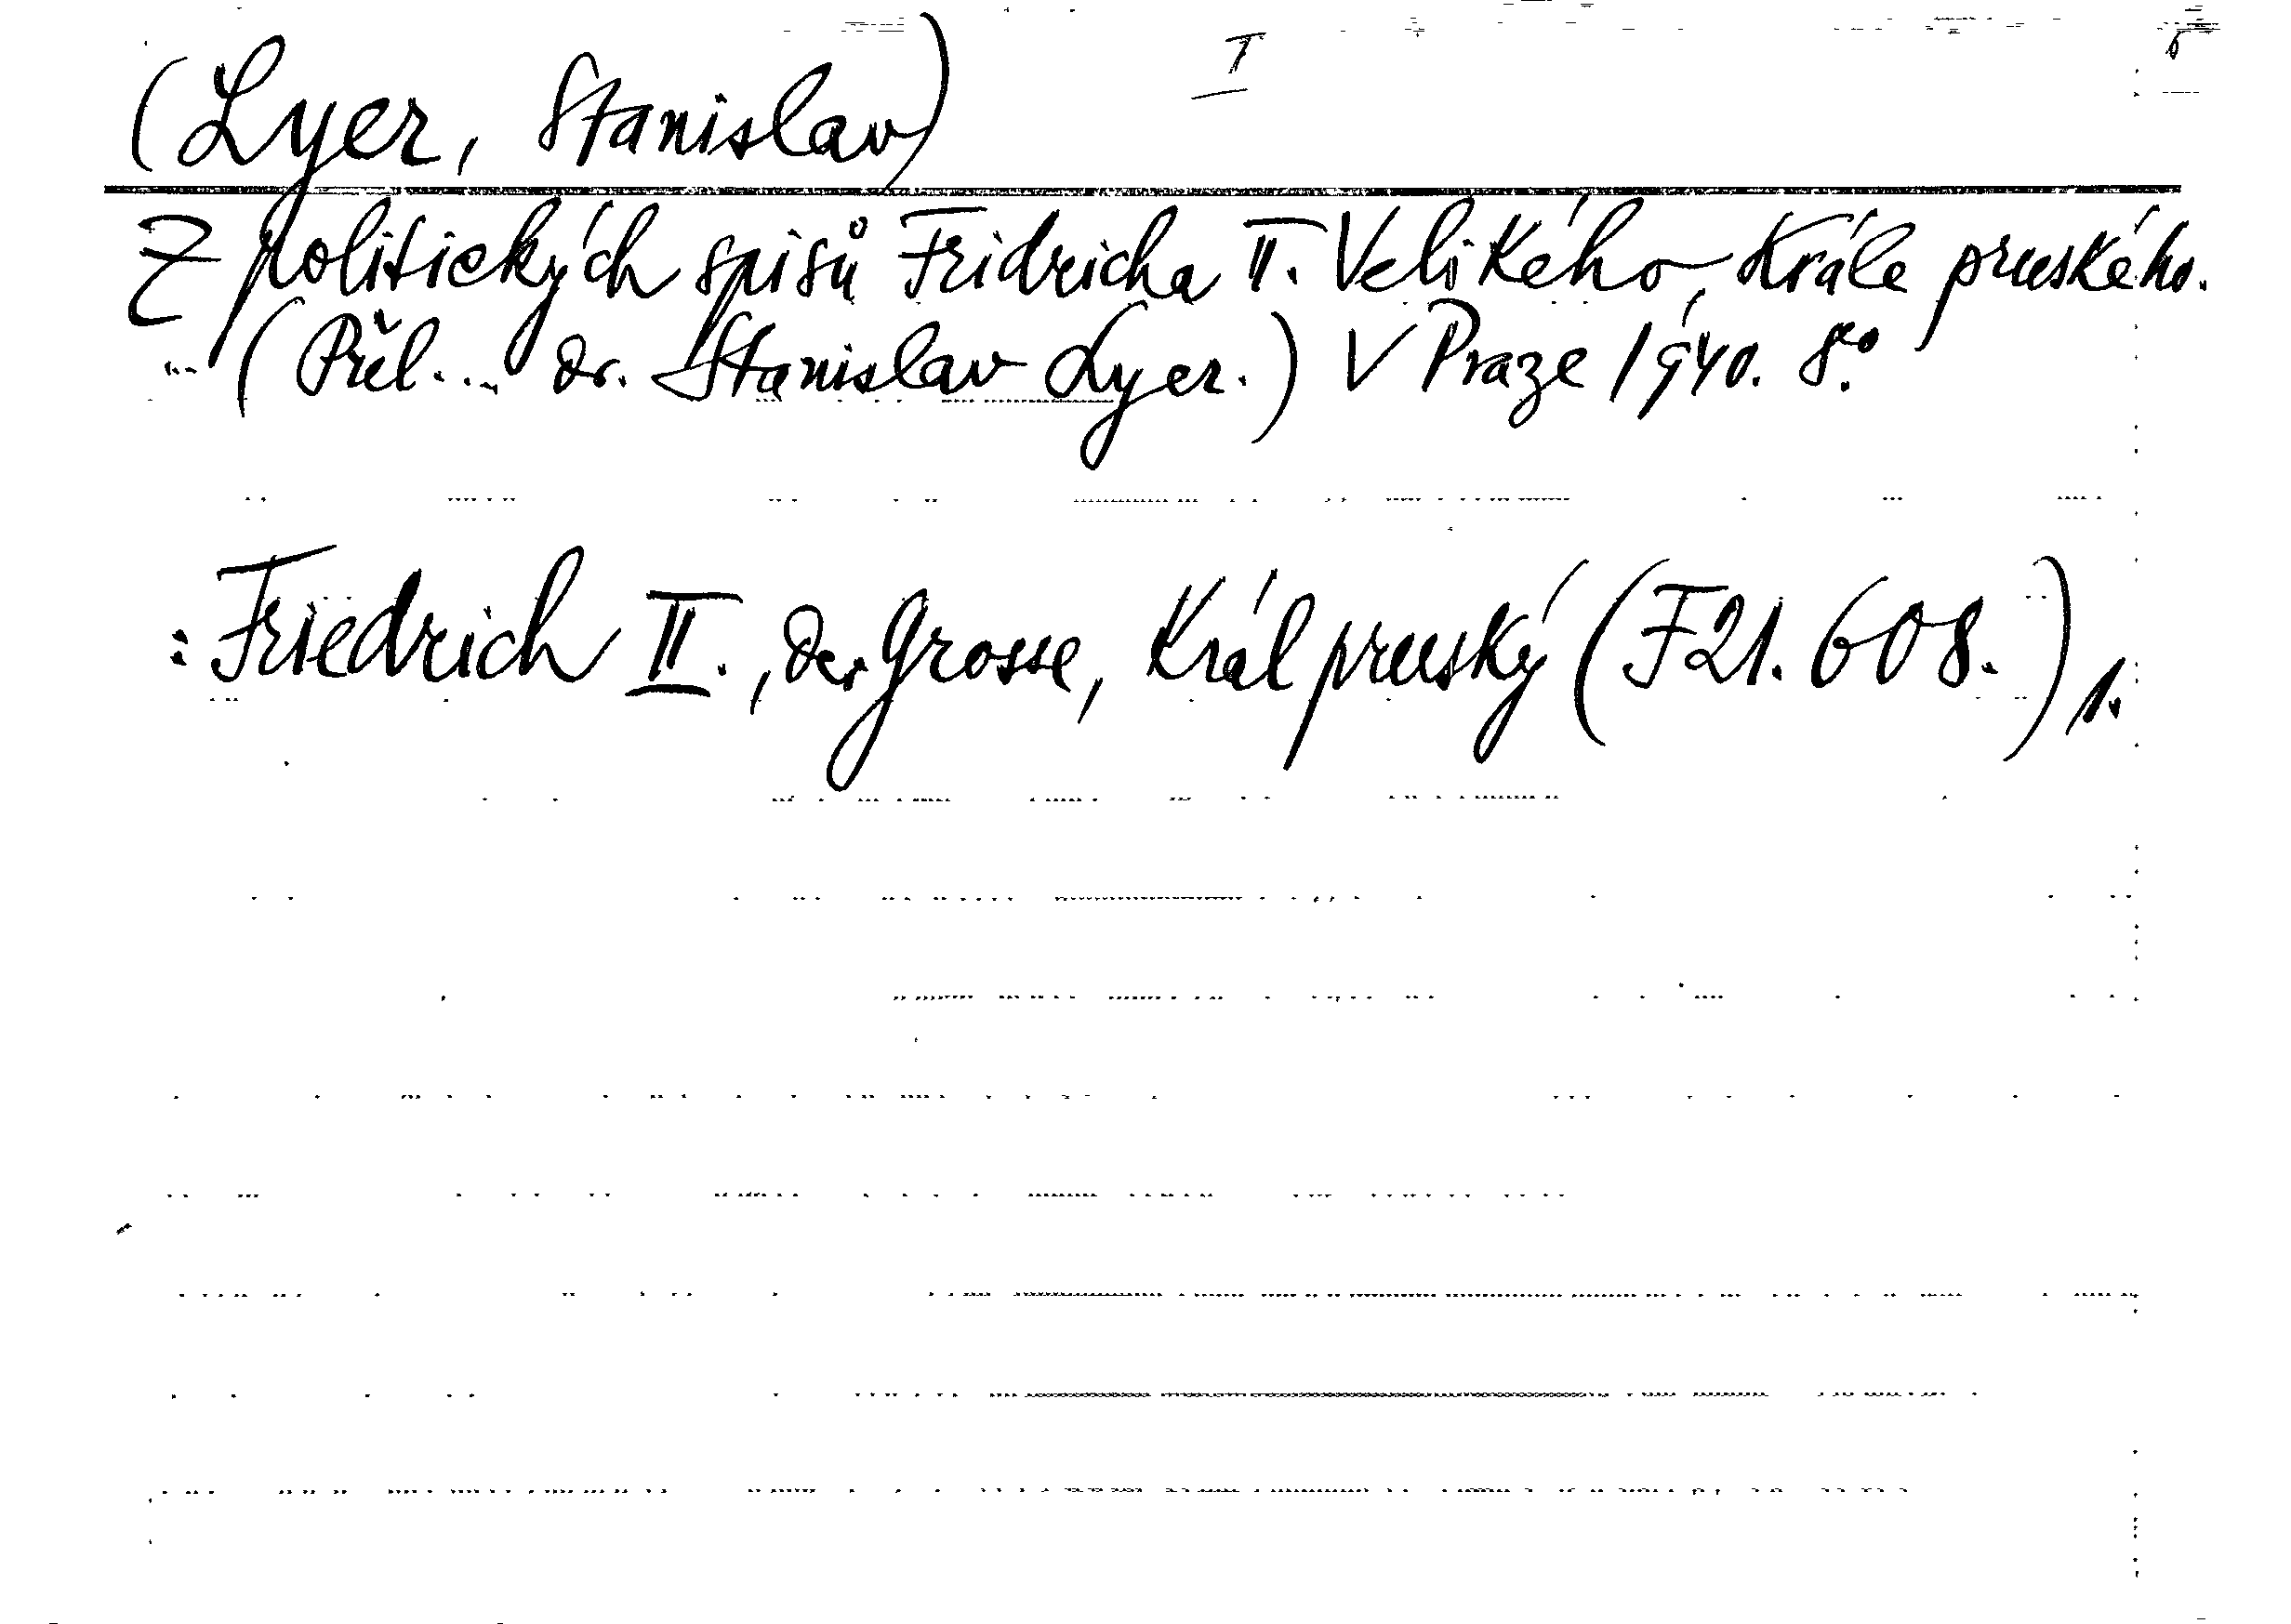 (Lyer, Stanislav) I
Z politických spisů Fridricha II. Velikého, krále pruského.
... (Přel... Dr. Stanislav Lyer.) V Praze 1940. 8.°
: Friedrich II., der Grosse, král pruský (F 21.608.) 1.